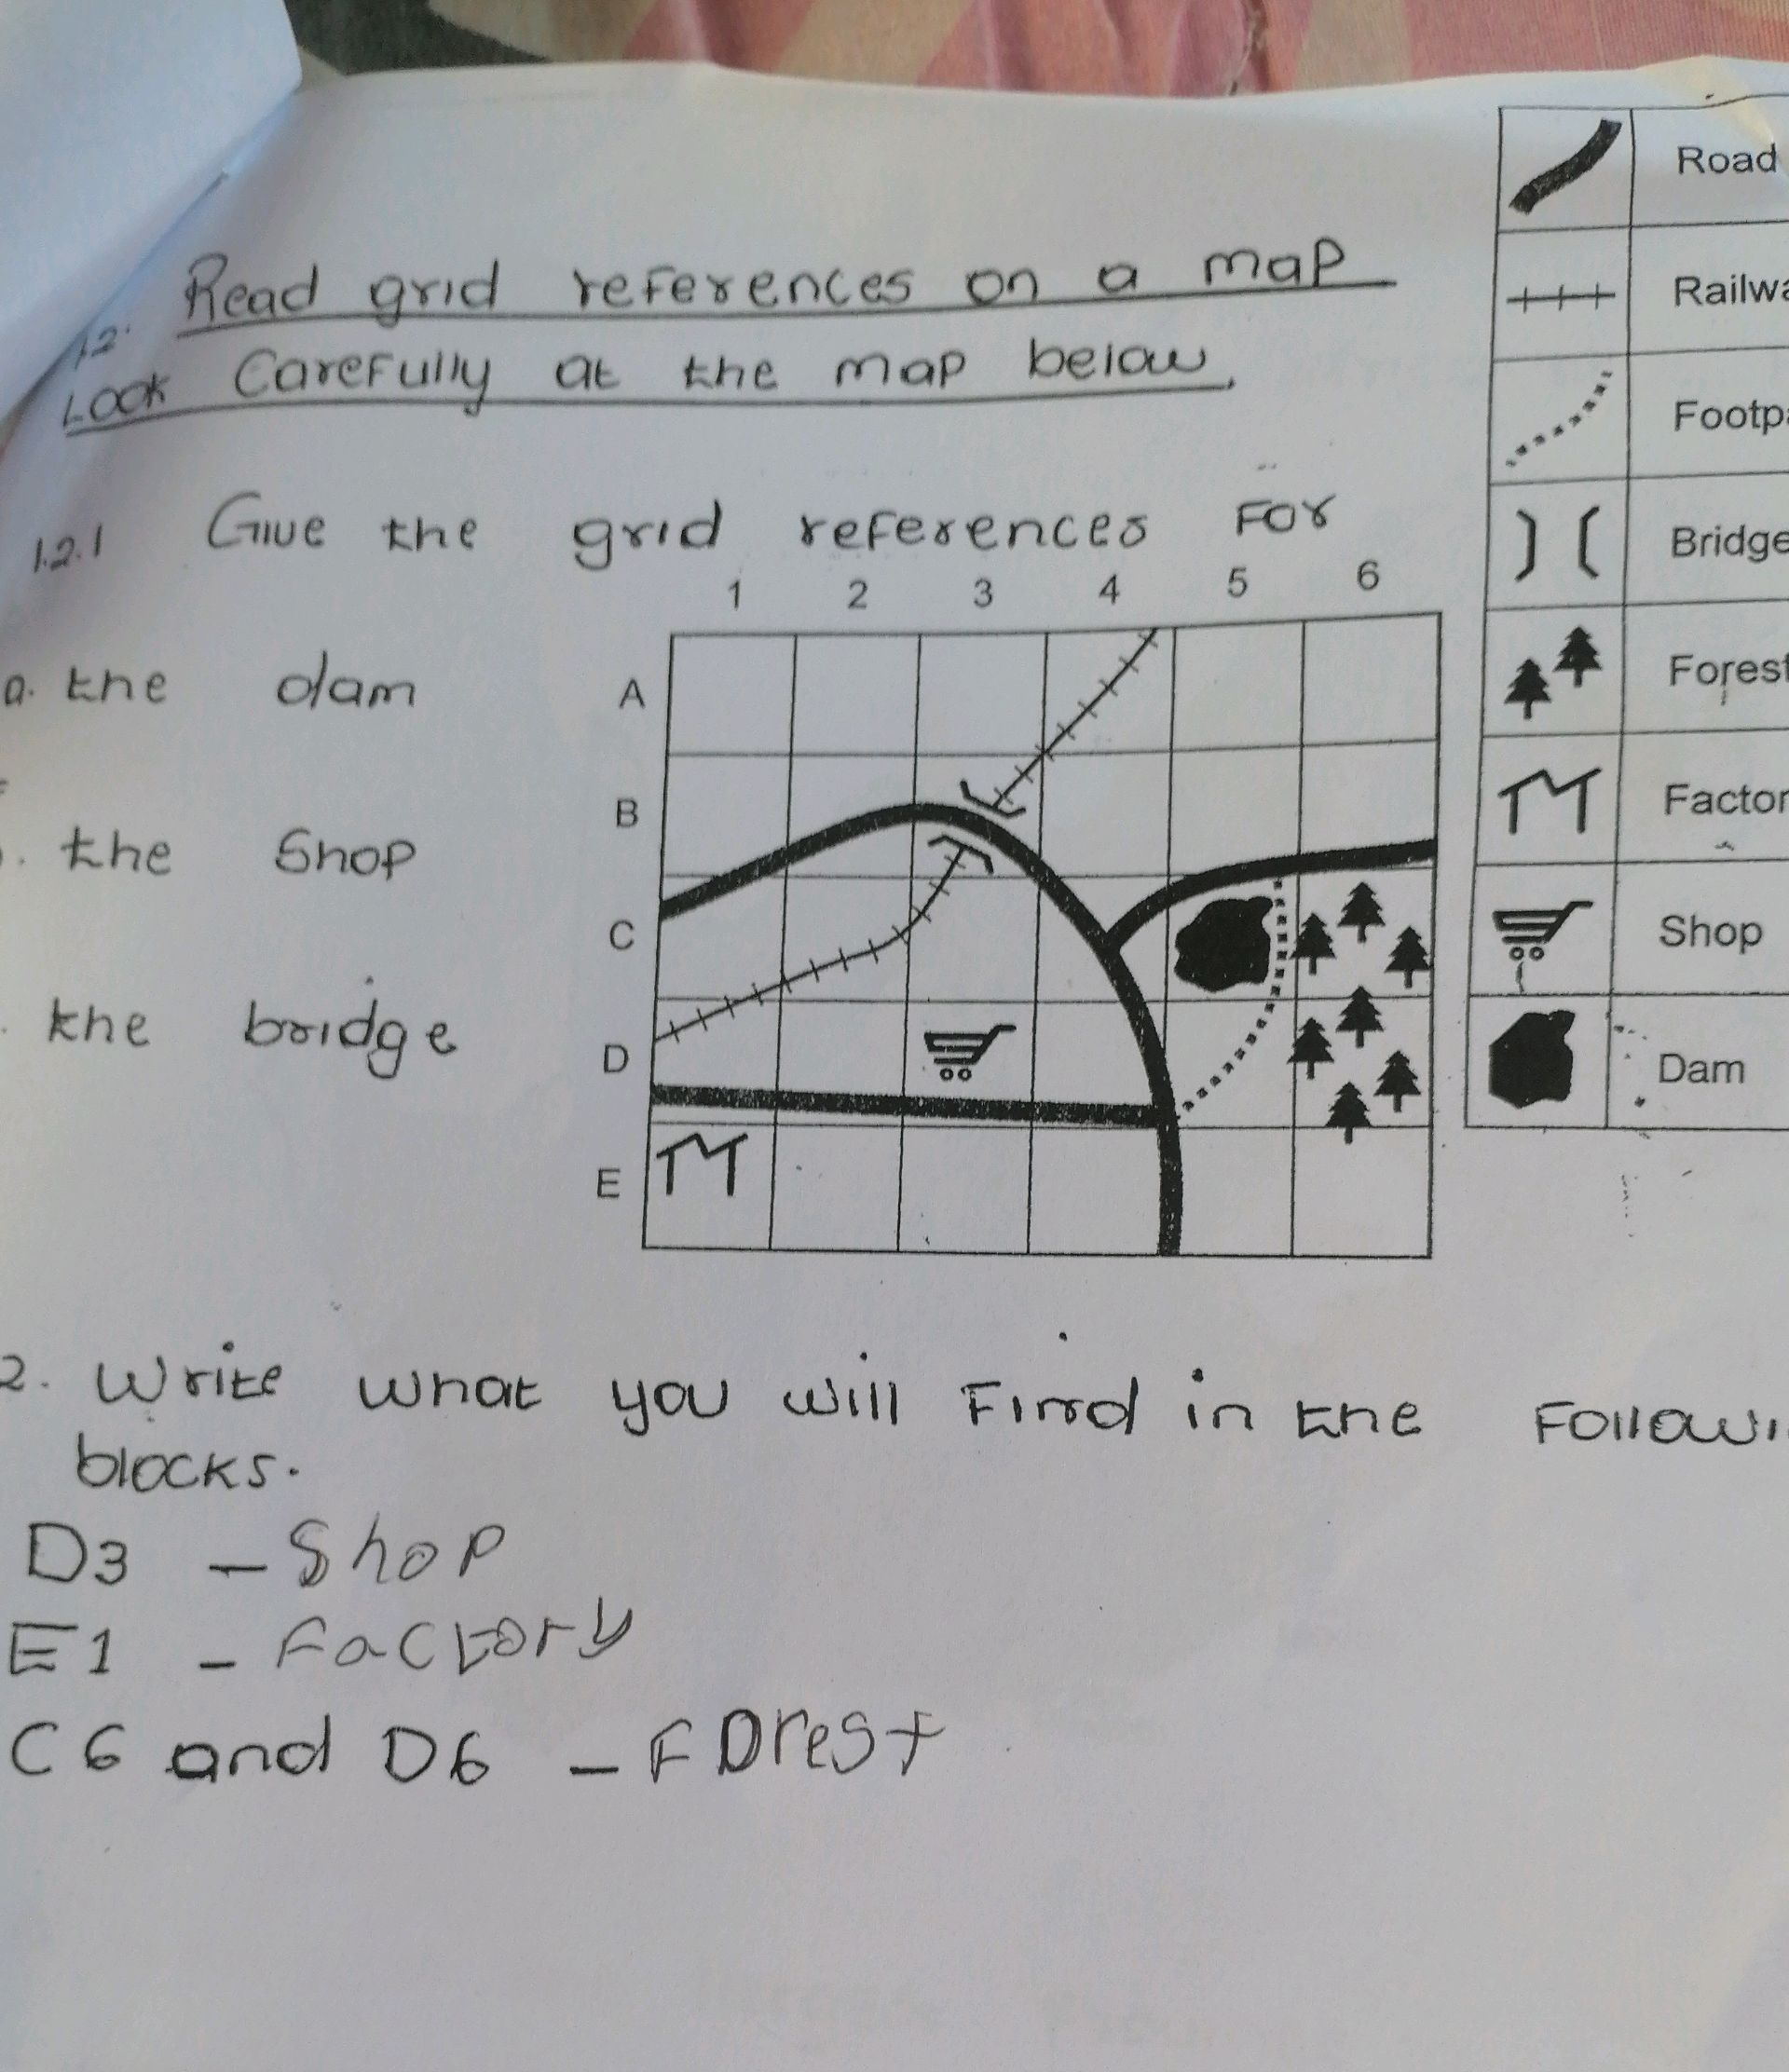 Road
Railwa
Footpa
Bridge
Forest
Factor
Shop
Dam
1.2. Read grid references on a map
Look Carefully at the map below.
1.2.1 Give the grid references For
1 2 3 4 5 6
a. the dam
A
B
. the Shop
C
. the bridge
D
E
2. Write what you will Find in the Followi
blocks.
D3 – Shop
E1 – Factory
C6 and D6 – Forest